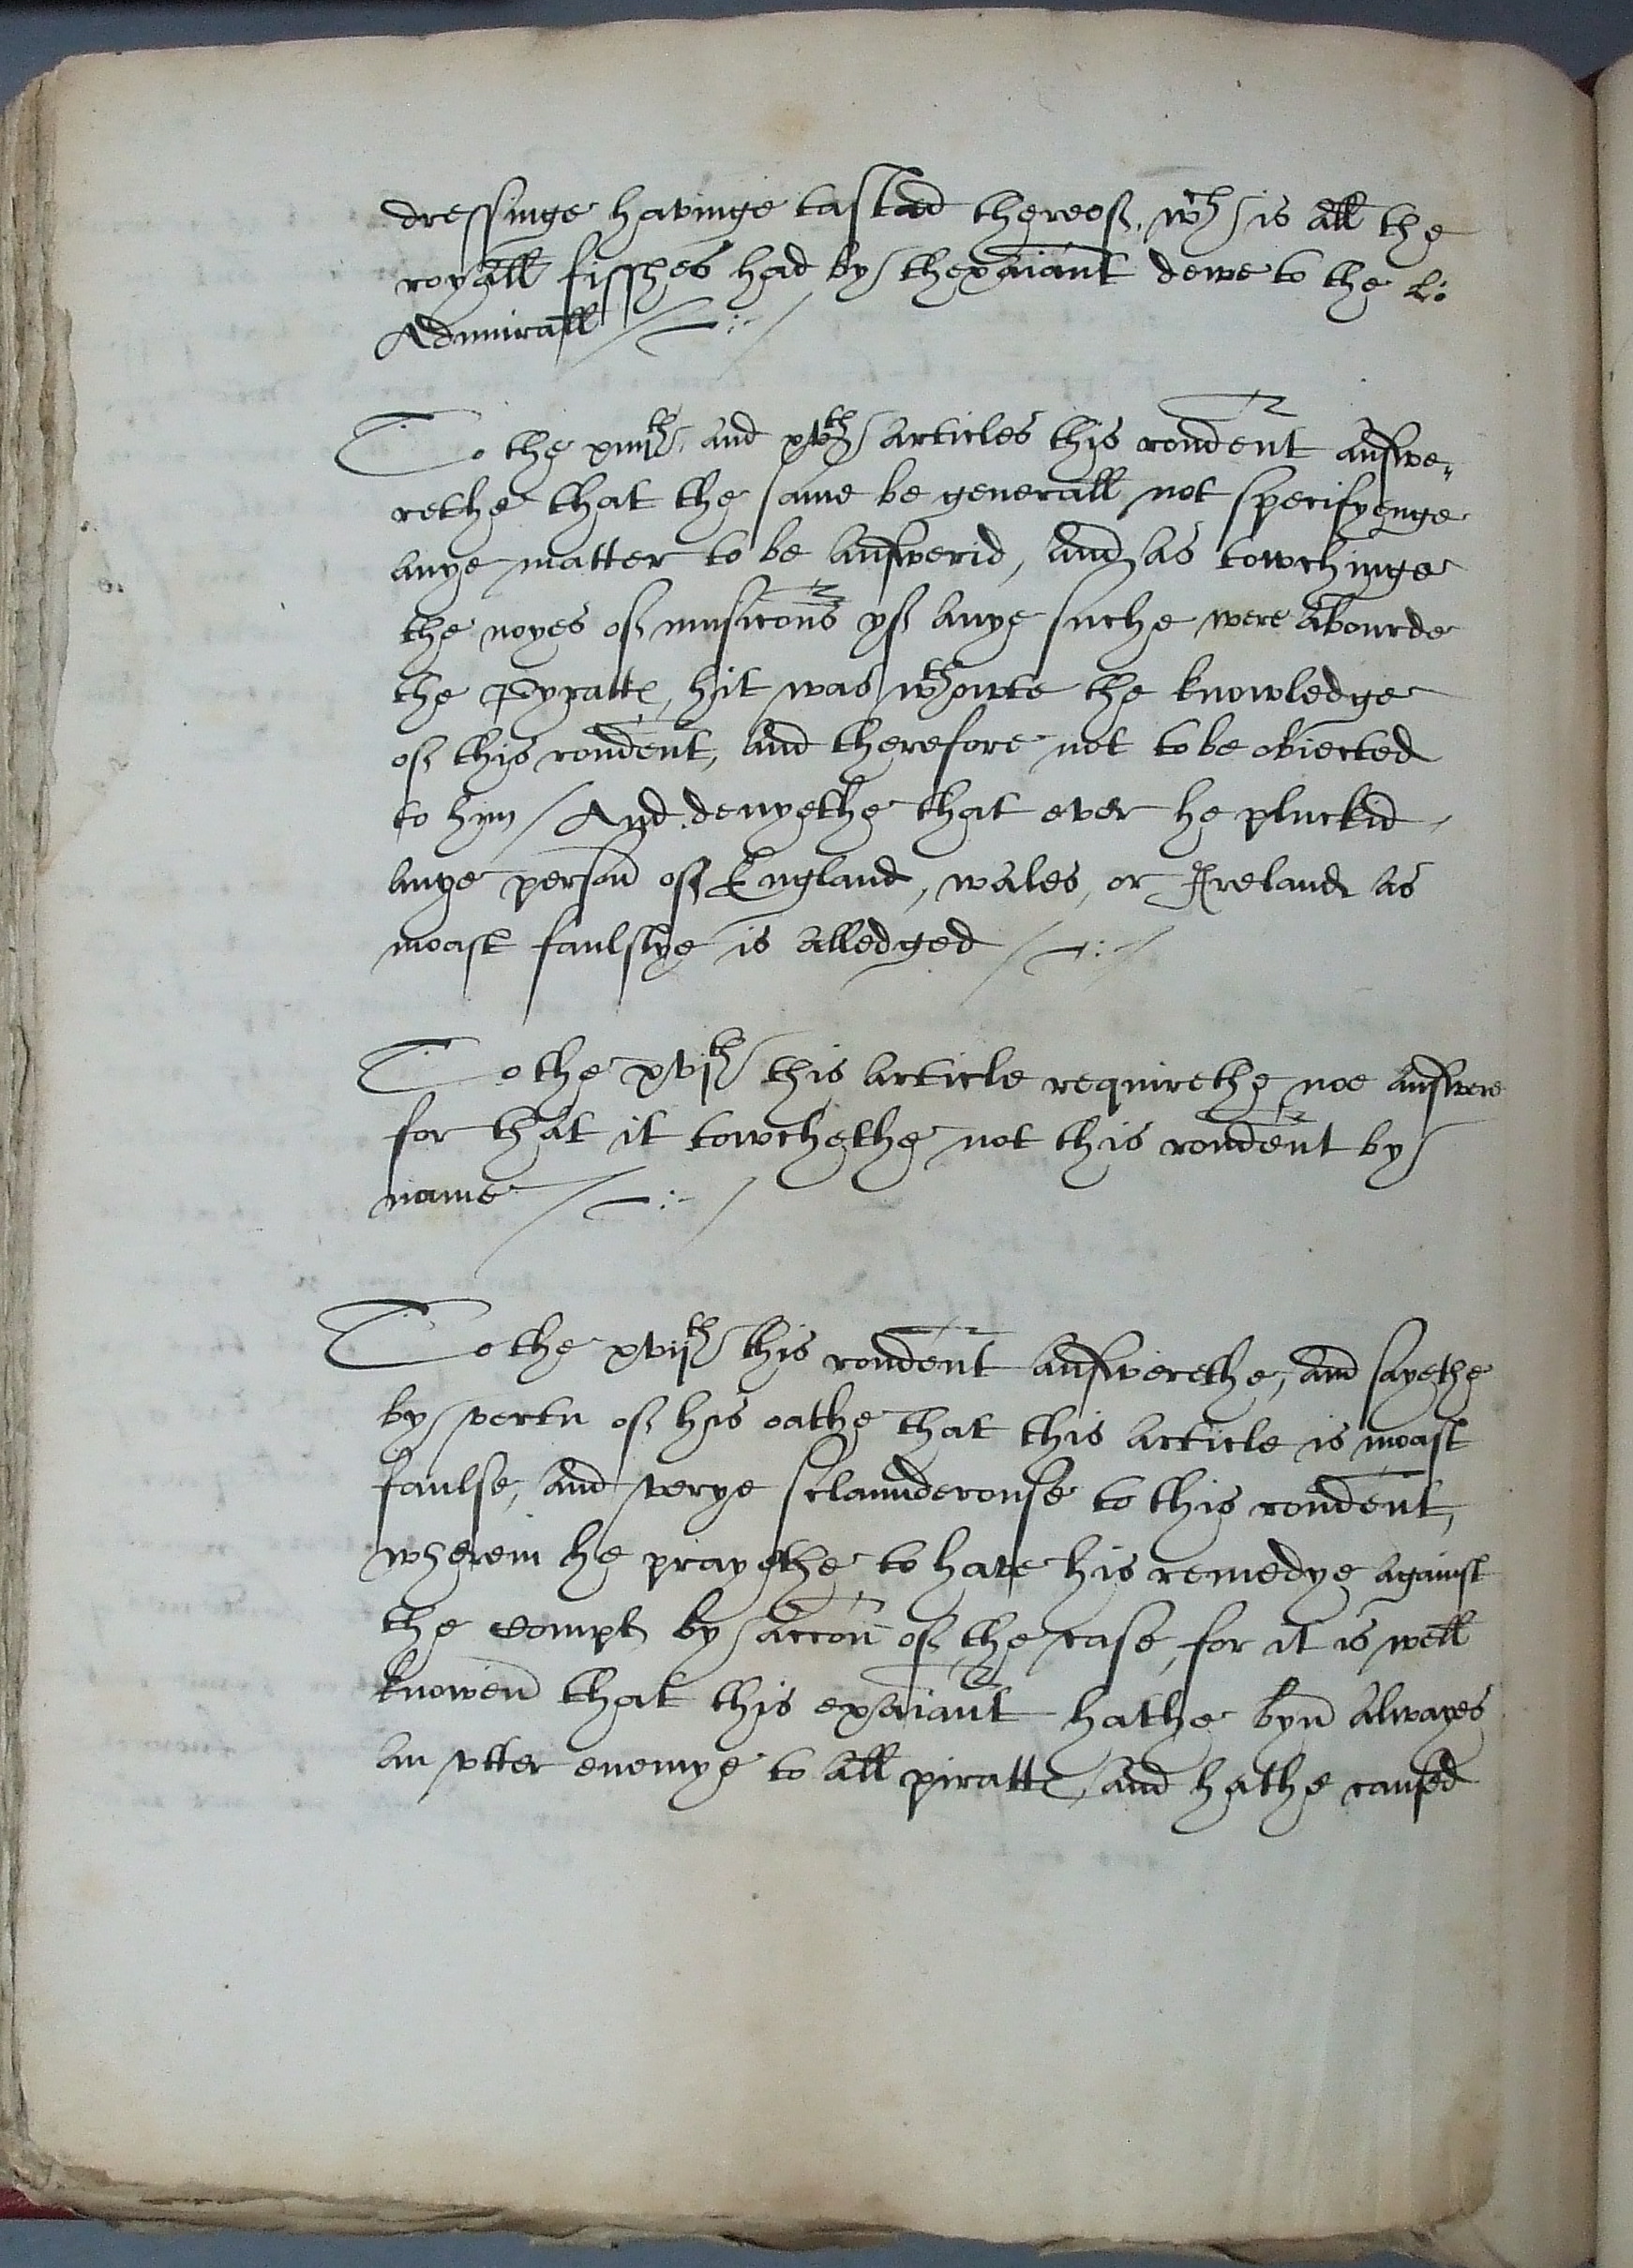 dressinge havinge tasted thereof, wch is all the
royall fisshes had by thexaiant dewe to the L:
Admirall
To the xiiijth, and xvth articles this rondent answe-
rethe that the same be generall not specifyenge
anye matter to be answerid, and as towchinge
the noyes of musicons yf anye suche were abourde
the Pyratts, hit was wthowte the knowledge
of this rondent, and therefore not to be obiected
to hym / And denyethe that ever he pluckid
anye person of England, wales, or Ireland as
moast faulslye is alledged
To the xvjth this article requirethe noe answere
for that it towchethe not this rondent by
name
To the xvijth this rondent answerethe, and sayethe
by vertu of his oathe that this article is moast
faulse, and verye sclaunderouse to this rondent,
wherein he prayethe to have his remedye against
the Compt by accon of the case, for it is well
knowen that this exaiant hathe byn alwayes
an vtter enemye to all piratts, and hathe caused